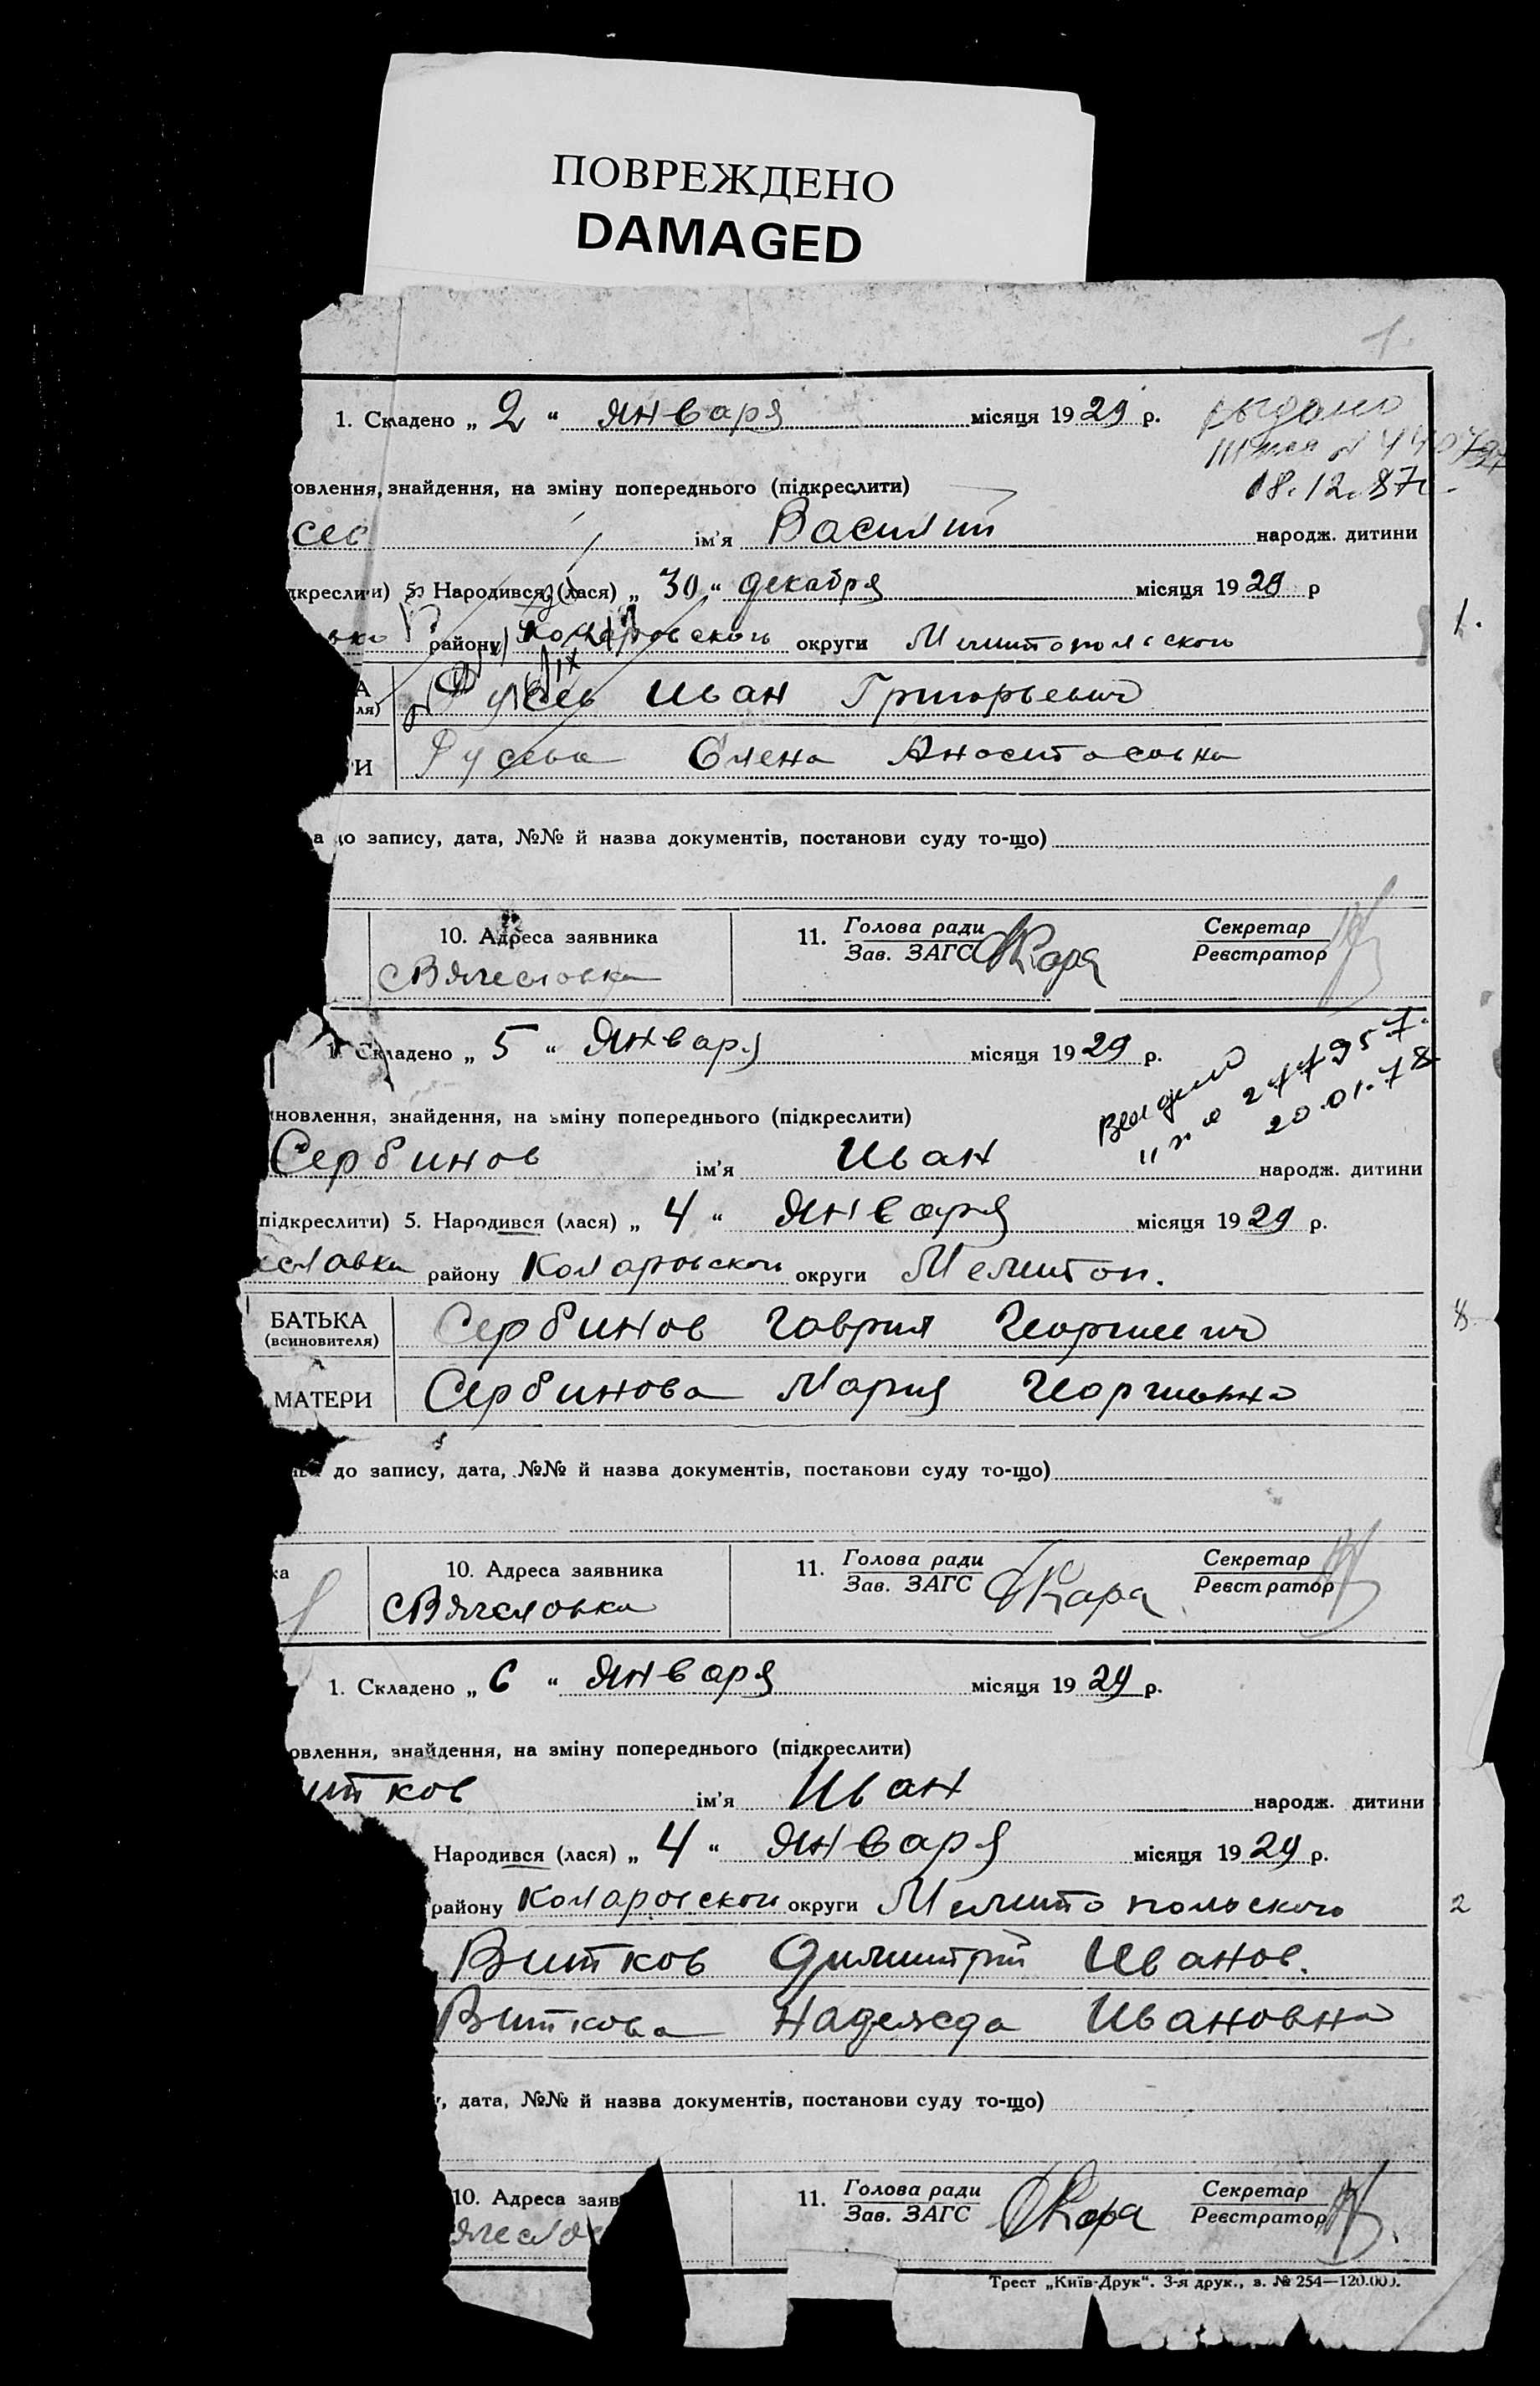 ПОВРЕЖДЕНО
DAMAGED
1.
1. Складено „ 2 “ января місяця 19 29 р.
выдано
18.12.87г.
овлення, знайдення, на зміну попереднього (підкреслити)
сев ім'я Василий народж. дитини
дкреслити) 5. Народився (лася) „ 30 “ декабря місяця 19 29 р
району Коларовского округи Мелитопольского
1.
А
ля)
Русев Иван Григорьевич
РИ
Русева Елена Анастасовна
а до запису, дата, №№ й назва документів, постанови суду то-що)
10. Адреса заявника
Вячеславка
11. Голова ради
Зав. ЗАГС
Кара
Секретар
Реєстратор
1. Складено „ 5 “ января місяця 19 29 р.
Выдано
277957
20.01.78
новлення, знайдення, на зміну попереднього (підкреслити)
Сербинов ім'я Иван народж. дитини
підкреслити) 5. Народився (лася) „ 4 “ января місяця 19 29 р.
еславка району Коларовского округи Мелитоп.
БАТЬКА
(всиновителя)
Сербинов Гаврил Георгиевич
8
МАТЕРИ
Сербинова Мария Георгиевна
до запису, дата, №№ й назва документів, постанови суду то-що)
ка
10. Адреса заявника
Вячеславка
11. Голова ради
Зав. ЗАГС
Кара
Секретар
Реєстратор
1. Складено „ 6 “ января місяця 19 29 р.
овлення, знайдення, на зміну попереднього (підкреслити)
итков ім'я Иван народж. дитини
Народився (лася) „ 4 “ января місяця 19 29 р.
району Коларовского округи Мелитопольского
2
Витков Димитрий Иванов.
Виткова Надежда Ивановна
, дата, №№ й назва документів, постанови суду то-що)
10. Адреса заяв
ячеслав
11. Голова ради
Зав. ЗАГС
Кара
Секретар
Реєстратор
Трест „Київ-Друк“. 3-я друк., з. № 254—120.000.